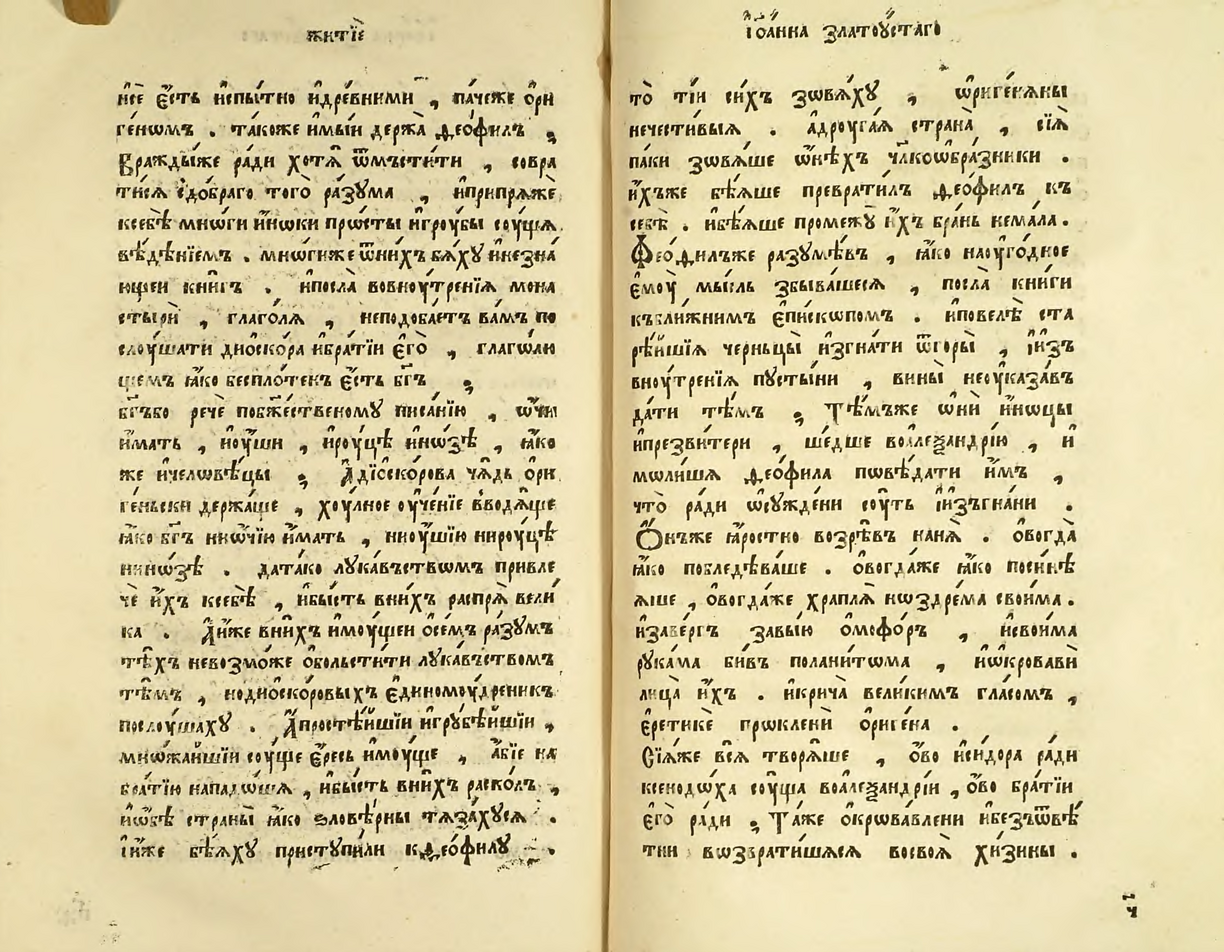 житїѐ
нсе є҆́сть и҆спы́тно и҆дре́вними , па́чеже ѻ҆ри
ге́нѡмъ . та́коже и҆мы́и держа̀ ѳео́филъ ,
враждыже ра́ди хотѧ̀ ѿмъсти́ти , совра
ти́сѧ ѿдо́браго того̀ ра́зума , и҆припрѧжѐ
ксебѣ̀ мнѡ́ги и҆́нѡки прѡ́сты и҆гроу́бы соу́щѧ
вѣ́дѣнїемъ . мнѡ́гиже ѿни́хъ бѧ́хꙋ и҆незна́
ющеи кни́гъ . и҆посла̀ вовноу́тренїѧ мона
стырѝ , глаго́лѧ , неподоба́етъ ва́мъ по
слоу́шати дио́скора и҆бра́тїи є҆гѡ̀ , глагѡ́лю
щемъ ꙗ҆́ко беспло́тенъ є҆́сть бг҃ъ ,
бг҃ъбо речѐ побж҃е́ственомꙋ писа́нїю , ѻ҆́чи
и҆́мать , и҆оу҆́ши , и҆роу́цѣ и҆но́зѣ , ꙗ҆́ко
же и҆человѣ́цы , А҆дїѡско́рова ча́дь ѻ҆ри
ге́ньски держа́ше , хоу́лное оу҆че́нїе вводѧ́ще
ꙗ҆́ко бг҃ъ ниѻ҆́чїю и҆́мать , ниоу҆́шїю нироу́цѣ
нино́зѣ . дата́ко лꙋка́вьствомъ привле
чѐ и҆́хъ ксебѣ̀ , и҆бы́сть вни́хъ ра́спрѧ вели́
ка . А҆и҆́же вни́хъ и҆моу́щеи ѻ҆се́мъ ра́зꙋмъ
тѣ́хъ невозмо́же ѻ҆больсти́ти лꙋка́вьствомъ
тѣ́мъ , нодио́скоровыхъ є҆диномоу́дреникъ
послоу́шахꙋ . А҆просте́йшїи и҆грꙋбѣ́йшїи ,
мнѡжа́йшїи соу́ще є҆́ресь и҆моу́ще , а҆́бїе на
бра́тїю нападо́шѧ , и҆бы́сть вни́хъ раско́лъ ,
и҆ѻ҆́бѣ страны̀ ꙗ҆́ко ѕловѣ́рны тѧза́хꙋсѧ .
І҆и҆́же бѣ́ѧхꙋ приступи́ли кѳео́филꙋ .
і҆ѻа́нна златоу́стаго
то̀ ті́и си́хъ зовѧ́хꙋ , ѻ҆риге́нѧны
нечести́выѧ . а҆дроуга́ѧ страна̀ , сїѧ̀
па́ки зовѧ́ше ѻ҆нѣ́хъ чл҃коѻбра́зники .
и҆́хъже бѣ́ѧше преврати́лъ ѳео́филъ къ
себѣ̀ . и҆бѣ́ѧше промежꙋ̀ и҆́хъ бра́нь нема́ла .
Ѳео́филъже разꙋмѣ́въ , ꙗ҆́ко наоу҆го́дное
є҆моу̀ мы́сль збыва́шесѧ , посла̀ кни́ги
къбли́жнимъ є҆пи́скѡпомъ . и҆повелѣ̀ ста
рѣ́йшїѧ черньцы̀ и҆згна́ти ѿгоры̀ , і҆и҆зъ
вноу́тренїѧ пꙋсты́ни , вины̀ неоу҆каза́въ
да́ти тѣ́мъ , Тѣ́мъже ѻ҆нѝ и҆́нѡцы
и҆презви́тери , ше́дше воале́ѯандрїю , и҆
моли́шѧ ѳео́фила повѣ́дати и҆̀мъ ,
что̀ ра́ди ѻ҆сꙋжде́ни соу́ть і҆и҆зъгна́ни .
Ѻ҆́нъже ꙗ҆́ростно возрѣ́въ нанѧ̀ . ѻ҆вогда̀
ꙗ҆́ко побледѣва́ше . ѻ҆вогда́же ꙗ҆́ко посинѣ
ѧ҆́ше , ѻ҆вогда́же храплѧ̀ ноздре́ма свои́ма .
и҆заве́ргъ за́выю ѻ҆мофо́ръ , и҆свои́ма
рꙋка́ма би́въ пола́нитома , и҆ѻ҆крова́ви
лица̀ и҆́хъ . и҆крича̀ вели́кимъ гла́сомъ ,
є҆ретичѐ прокленѝ ѻ҆риге́на .
Сїѧ́же всѧ̀ творѧ́ше , ѻ҆́во и҆си́дора ра́ди
ксенодо́ха соу́ща воале́ѯандрїи , ѻ҆́во бра́тїи
є҆гѡ̀ ра́ди , Та́же ѻ҆кровавле́ни и҆безъѿвѣ́
тни возврати́шѧсѧ восвоѧ̀ хи́зины .
ч҃